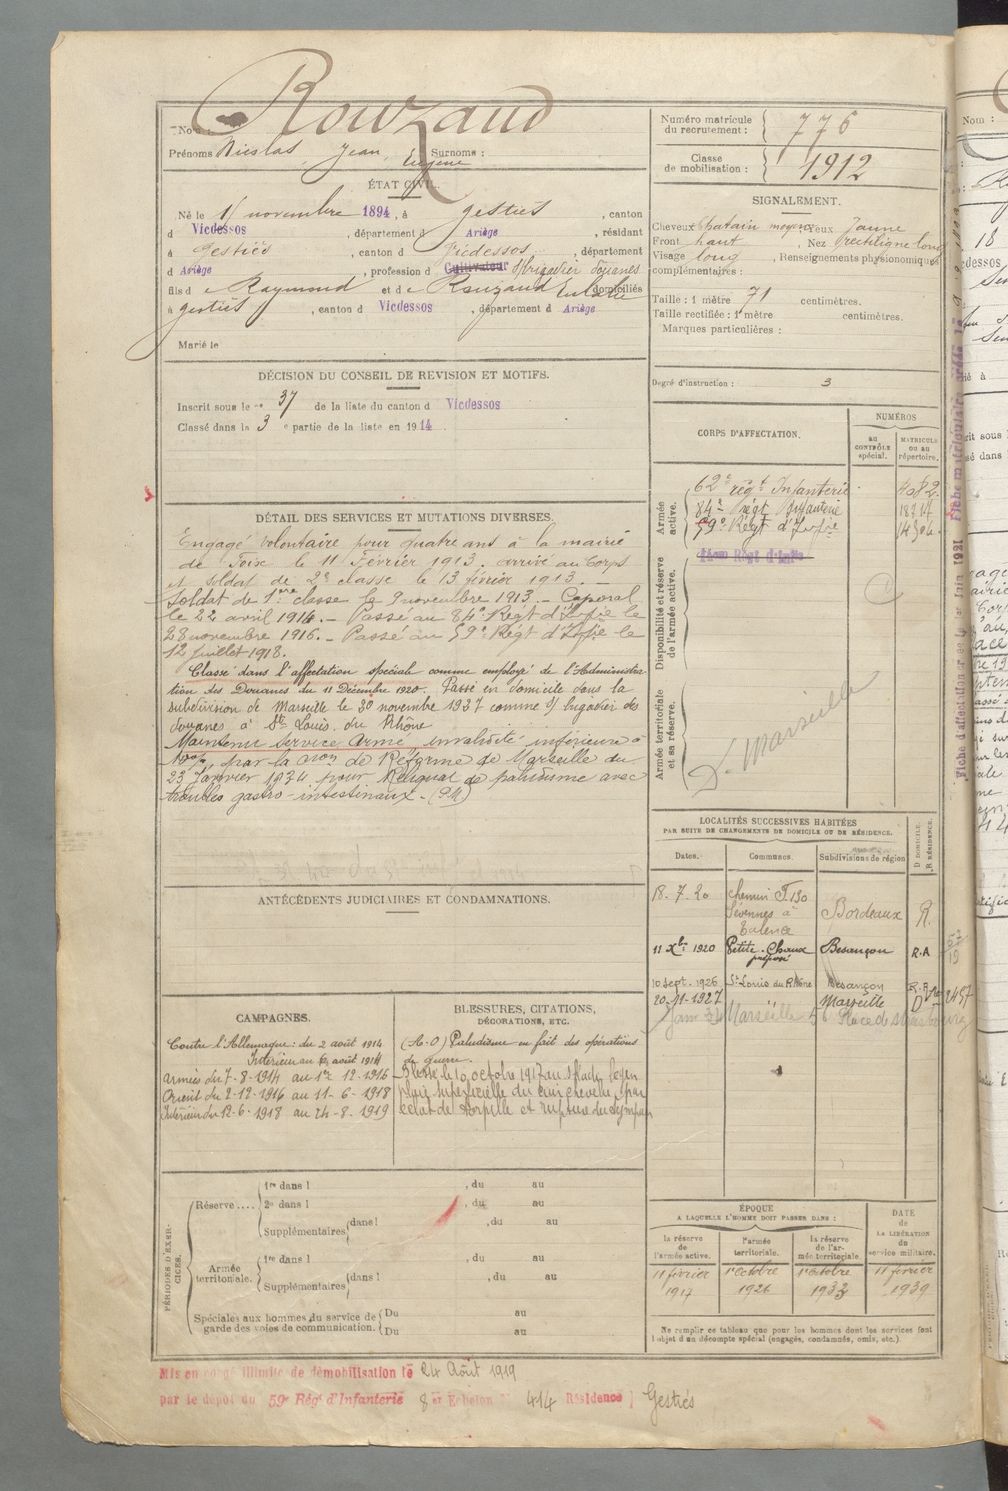 Nom : Rouzaud
Prénoms Nicolas, Jean, Eugène Surnoms :
Numéro matricule du recrutement : 776
Classe de mobilisation : 1912
ÉTAT CIVIL.
Né le 1 novembre 1894, à Gestiès, canton
d Vicdessos, département d Ariège, résidant
à Gestiès, canton d Vicdessos, département
d Ariège, profession d Cultivateur Brigadier Douanes
fils d e Raymond et d e Rouzaud Eulalie domiciliés
à Gestiès, canton d Vicdessos, département d Ariège
Marié le
SIGNALEMENT.
Cheveux chatain moyen Yeux Jaune
Front haut, Nez rectiligne long
Visage long, Renseignements physionomiques
complémentaires :
Taille : 1 mètre 71 centimètres.
Taille rectifiée : 1 mètre centimètres.
Marques particulières :
Degré d'instruction : 3
DÉCISION DU CONSEIL DE REVISION ET MOTIFS.
Inscrit sous le n° 37 de la liste du canton d Vicdessos
Classé dans la 3 e partie de la liste en 1914
CORPS D'AFFECTATION.
NUMÉROS
au CONTRÔLE spécial.
MATRICULE ou au répertoire.
Armée active.
62e régt Infanterie 4082
84e Régt Infanterie
59e Régt d'Infie
Disponibilité et réserve de l'armée active.
Armée territoriale et sa réserve.
D. Marseille
DÉTAIL DES SERVICES ET MUTATIONS DIVERSES.
Engagé volontaire pour quatre ans à la mairie
de Foix le 11 Février 1913. arrivé au Corps
et soldat de 2e classe le 13 février 1913. —
Soldat de 1ère classe le 9 novembre 1913. — Caporal
le 22 avril 1914. — Passé au 84e Régt d'Infie le
28 novembre 1916. — Passé au 59e Régt d'Infie le
12 juillet 1918.
Classé dans l'affectation spéciale comme employé de l'Administra-
tion des Douanes du 11 Décembre 1920. Passé en domicile dans la
subdivision de Marseille le 30 novembre 1927 comme s/ brigadier des
douanes à St Louis du Rhône
Maintenu Service Armé invalidité inférieure à
10%, par la Con de Réforme de Marseille du
23 Janvier 1934 pour Reliquat de paludisme avec
troubles gastro-intestinaux. (PM)
ANTÉCÉDENTS JUDICIAIRES ET CONDAMNATIONS.
LOCALITÉS SUCCESSIVES HABITÉES
PAR SUITE DE CHANGEMENTS DE DOMICILE OU DE RÉSIDENCE.
Dates. Communes. Subdivisions de région D DOMICILE. R RÉSIDENCE.
18-7-20 chemin
Cévennes à Bordeaux R.
Talence
11 Xbre 1920 Petite-Chaux Besançon R.A
préposé
10 Sept. 1926 St Louis du Rhône Besançon
20-11-1927 " Marseille D 2457
Marseille Place de Strasbourg
CAMPAGNES.
Contre l'Allemagne : du 2 août 1914
Intérieur au 6 août 1914
Armées du 7-8-1914 au 1er 12-1916
Orient du 2-12-1916 au 11-6-1918
Intérieur du 12-6-1918 au 24-8-1919
BLESSURES, CITATIONS, DÉCORATIONS, ETC.
(A.O) Paludisme en fait des opérations
de guerre.
Blessé le 10 octobre 1917 au
plaie superficielle du cuir chevelu par
éclat de torpille et rupture du tympan
PÉRIODES D'EXERCICES.
Réserve .... 1re dans l , du au
2e dans l , du au
Supplémentaires dans l , du au
Armée territoriale. 1re dans l , du au
Supplémentaires dans l , du au
Spéciales aux hommes du service de garde des voies de communication. Du au
Du au
ÉPOQUE
A LAQUELLE L'HOMME DOIT PASSER DANS :
la réserve de l'armée active.
l'armée territoriale.
la réserve de l'armée territoriale.
DATE de LA LIBÉRATION du service militaire.
11 février 1917
1er octobre 1926
1er octobre 1933
11 février 1939
Ne remplir ce tableau que pour les hommes dont les services font l'objet d'un décompte spécial (engagés, condamnés, omis, etc.).
Mis en congé illimité de démobilisation le 24 Août 1919
par le dépôt du 59e Régt d'Infanterie 8 er Echelon N° 414 Résidence Gestiès